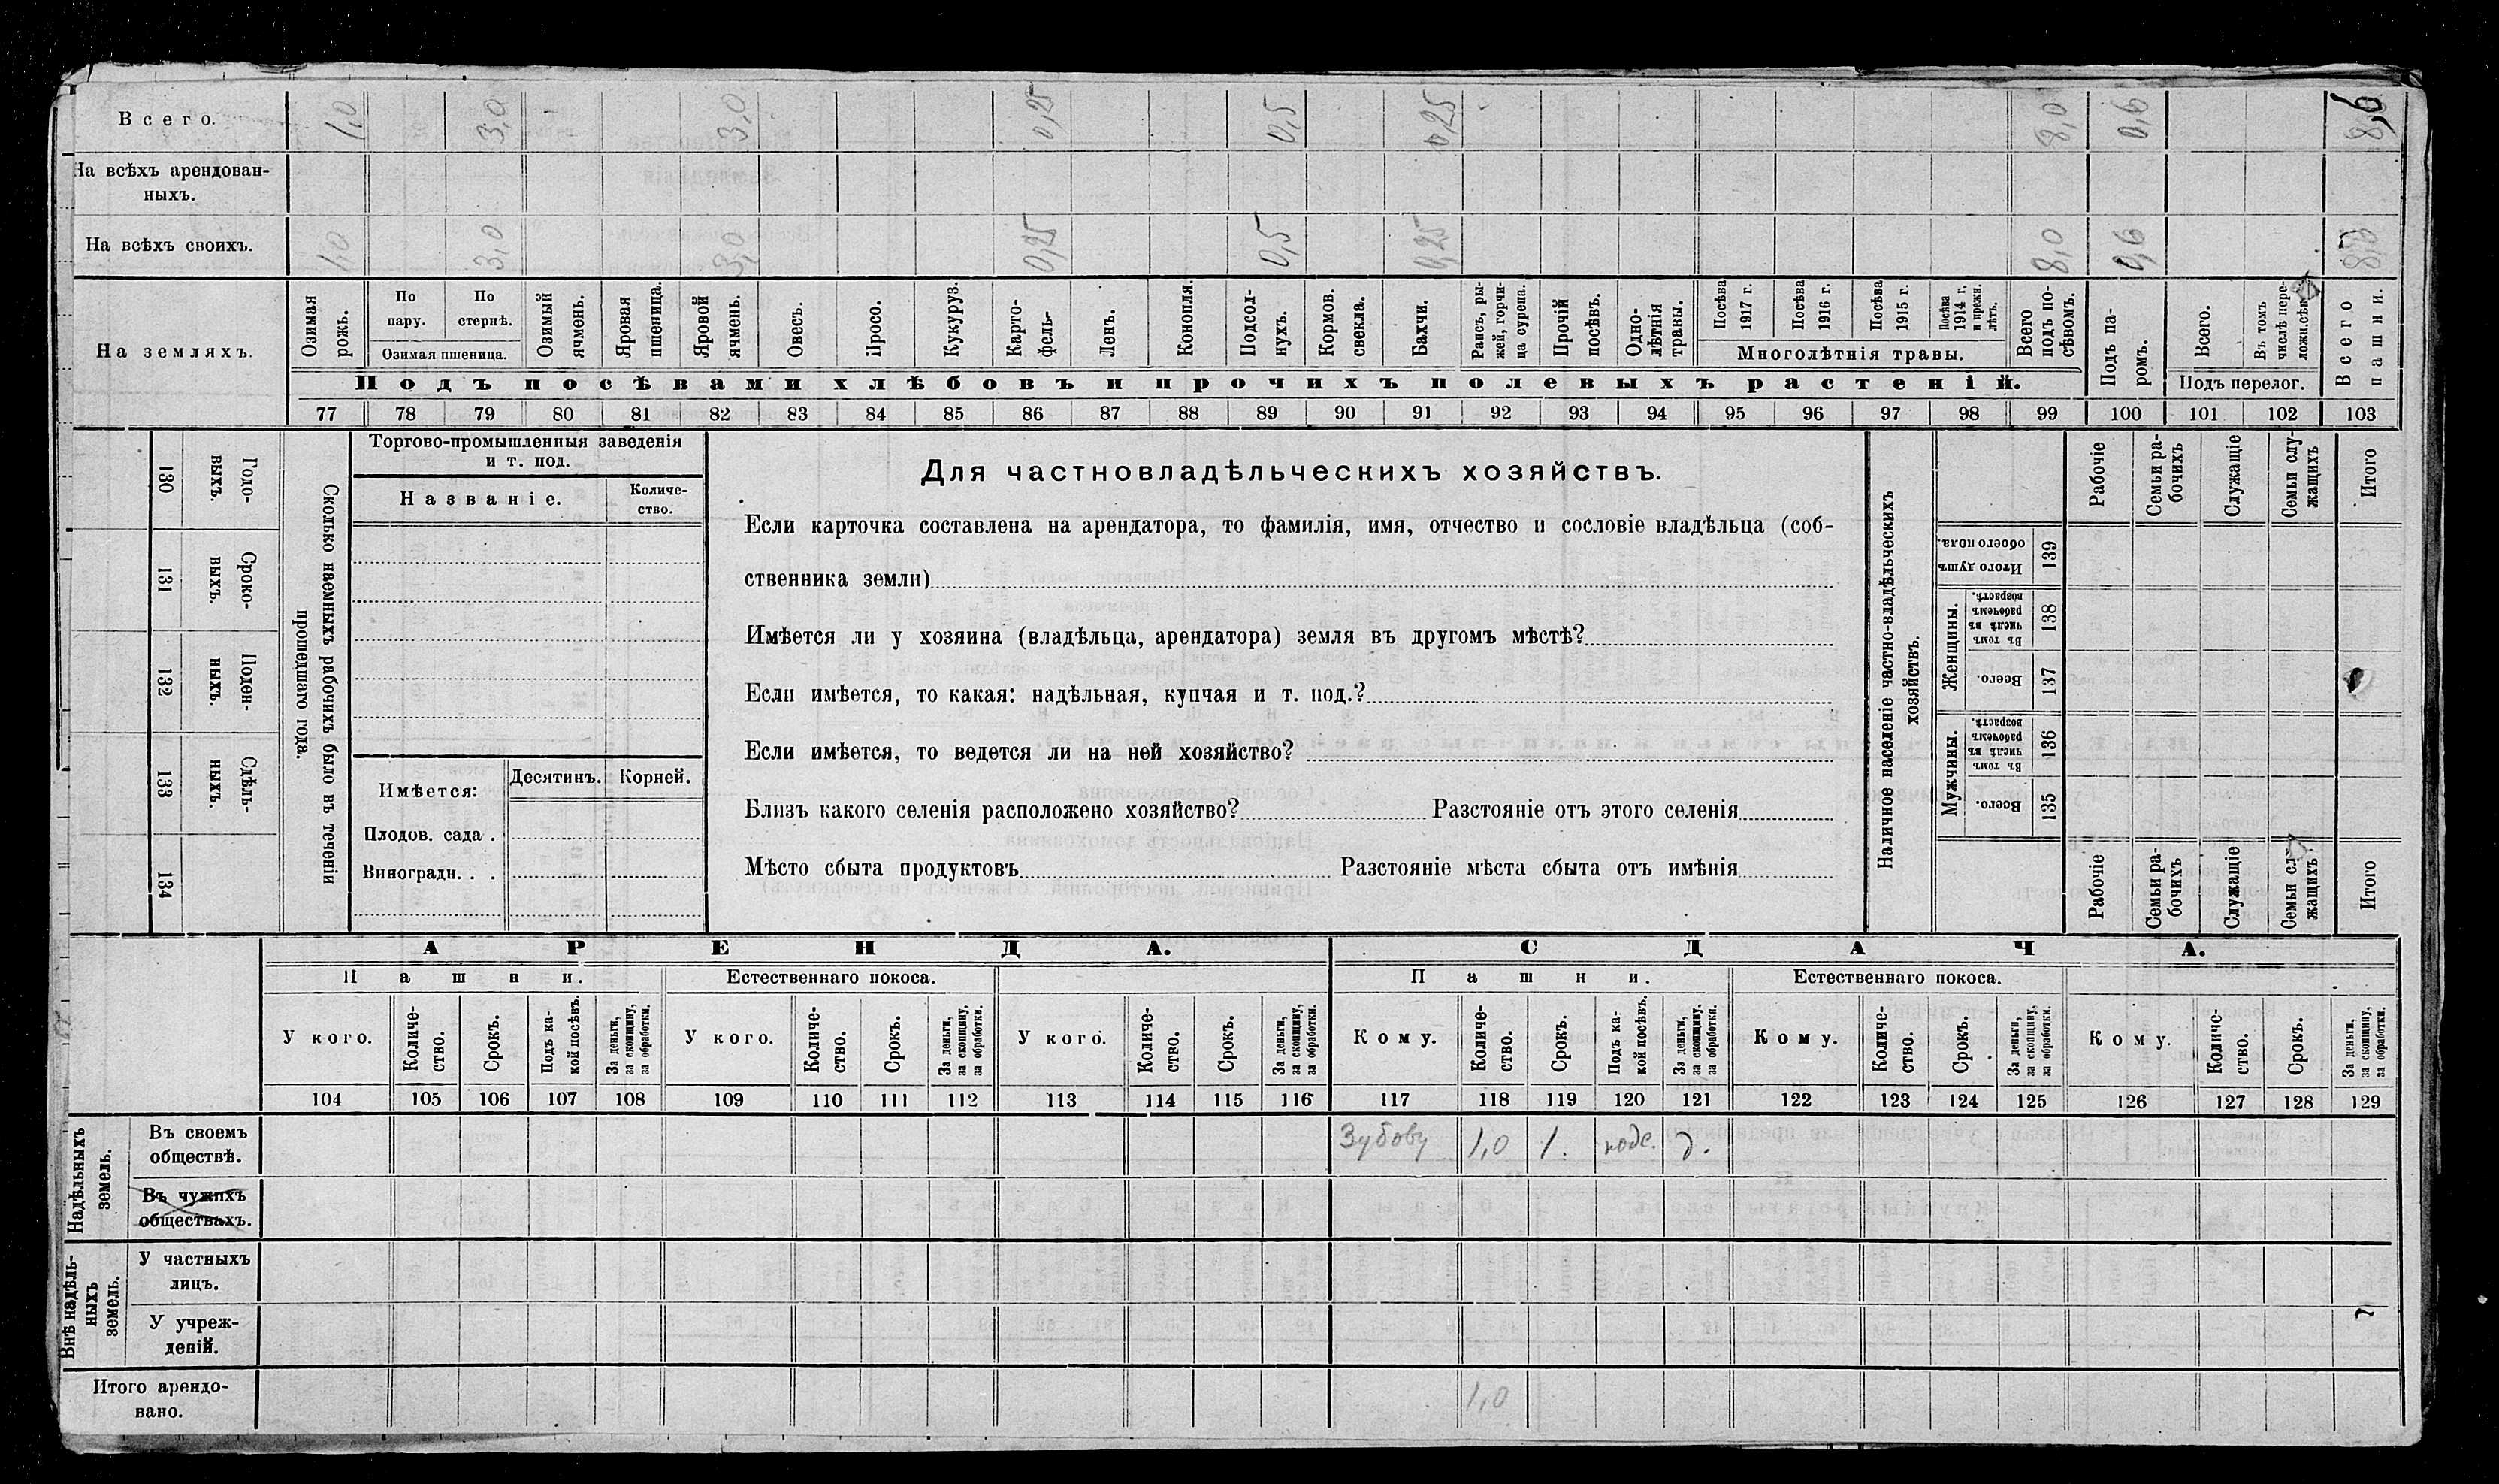 Всего. 1,0 3,0 3,0 0,25 0,5 0,25 8,0 0,6 8,6
На всѣхъ арендован-
ныхъ.
На всѣхъ своихъ. 1,0 3,0 3,0 0,25 0,5 0,25 8,0 0,6
На земляхъ.
Озимая рожь.
По пару.
По стернѣ.
Озимая пшеница.
Озимый ячмень.
Яровая пшеница.
Яровой ячмень.
Овесъ.
Просо.
Кукуруз.
Карто-
фель-
Ленъ.
Конопля.
Подсол-
нухъ.
Кормов.
свекла.
Бахчи.
Рапсъ, ры-
жей, горчи-
ца сурепа.
Прочій
посѣвъ.
Одно-
лѣтнія
травы.
Посѣва
1917 г.
Посѣва
1916 г.
Посѣва
1915 г.
Посѣва
1914 г,
и прежн.
лѣтъ.
Многолѣтнія травы.
Всего
подъ по-
сѣвомъ.
Подъ па-
ромъ.
Всего.
Въ томъ
числѣ пере-
Подъ перелог.
Всего
пашни.
Подъ посѣвами хлѣбовъ и прочихъ полевыхъ растеній.
77 78 79 80 81 82 83 84 85 86 87 88 89 90 91 92 93 94 95 96 97 98 99 100 101 102 103
130
Годо-
выхъ.
131
Сроко-
ныхъ.
132
Поден-
ныхъ.
133
Сдѣль-
ныхъ.
134
Сколько наемныхъ рабочихъ было въ теченіи
прошедшаго года.
Торгово-промышленныя заведенія
и т. под.
Названіе.
Количе-
ство.
Имѣется:
Десятинъ. Корней.
Плодов. сада .
Виноградн. . .
Для частновладѣльческихъ хозяйствъ.
Если карточка составлена на арендатора, то фамилія, имя, отчество и сословіе владѣльца (соб-
ственника земли)
Имѣется ли у хозяина (владѣльца, арендатора) земля въ другомъ мѣстѣ?
Если имѣется, то какая: надѣльная, купчая и т. под.?
Если имѣется, то ведется ли на ней хозяйство?
Близъ какого селенія расположено хозяйство? Разстояніе отъ этого селенія
Мѣсто сбыта продуктовъ Разстояніе мѣста сбыта отъ имѣнія
Наличное населеніе частно-владѣльческихъ
хозяйствъ.
Рабочіе
Семьи ра-
бочихъ
Служащіе
Семьи слу-
жащихъ
Итого
Итого душъ
обоего пола.
139
Женщины.
Въ томъ
числѣ въ
рабочемъ
возрастѣ.
138
Всего.
137
Мужчины.
Въ томъ
числѣ въ
рабочемъ
возрастѣ.
136
Всего.
135
Рабочіе
Семьи ра-
бочихъ
Служащіе
Семьи
жащихъ
Итого
АРЕНДА. СДАЧА.
Пашни. Естественнаго покоса. Пашни. Естественнаго покоса.
У кого.
Количе-
ство.
Срокъ.
Подъ ка-
кой посѣвъ.
За деньги,
за скопщину,
за обработки.
У кого.
Количе-
ство.
Срокъ.
За деньги,
за скопщину,
за обработки.
У кого.
Количе-
ство.
Срокъ.
За деньги,
за скопщину,
за обработки.
Кому.
Количе-
ство.
Срокъ.
Подъ ка-
кой посѣвъ.
За деньги,
за скопщину.
за обработки.
Кому.
Количе-
ство.
Срокъ.
За деньги,
за скопщину,
за обработки.
Кому.
Количе-
ство.
Срокъ.
За деньги,
за скопщину,
за обработки.
104 105 106 107 108 109 110 111 112 113 114 115 116 117 118 119 120 121 122 123 124 125 126 127 128 129
Надѣльныхъ
земель.
Въ своемъ
обществѣ.
Зубову 1,0 1. подс. д.
Въ чужихъ
обществахъ.
Внѣ надѣль-
ныхъ
земель.
У частныхъ
лицъ.
У учреж-
деній.
Итого арендо-
вано.
1,0